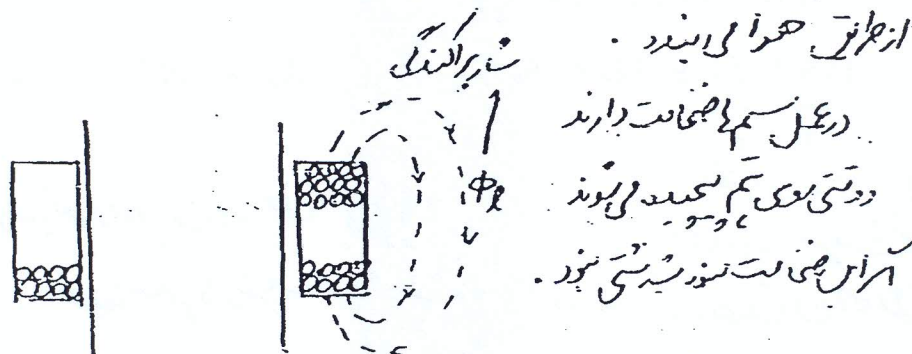 از طریق هوا می‌بندد.
شار پراکندگی
در عمل سیم‌ها ضخامت دارند
وقتی روی هم پیچیده می‌شوند
φl
اگر این ضخامت نبود نشتی نبود.